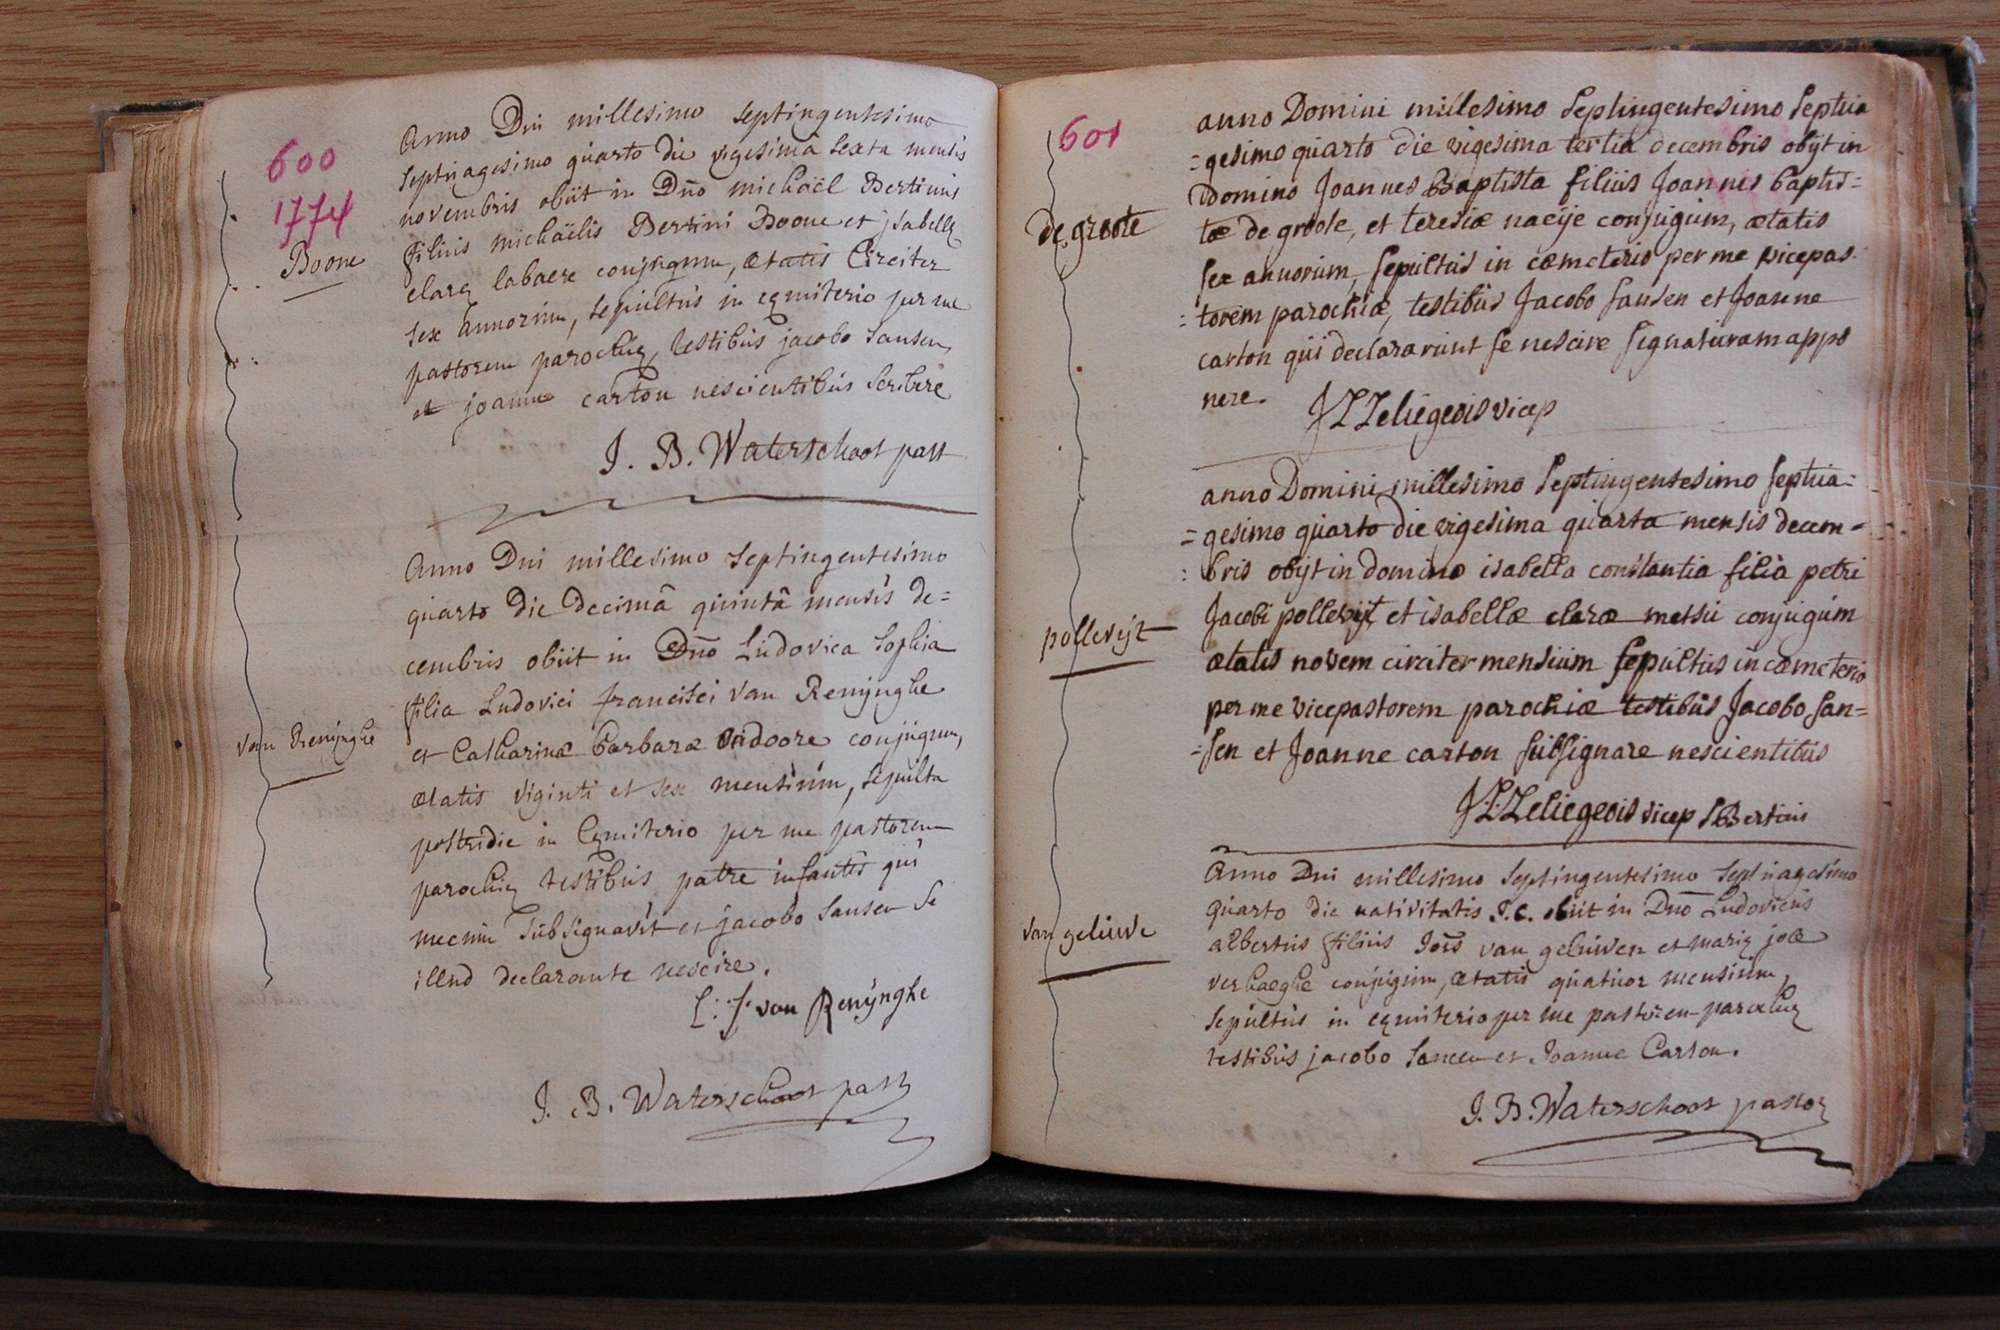 600
1774
Boone
Anno Dni millesimo septingentesimo
septuagesimo quarto die vigesima sexta mensis
novembris obiit in Dño michaël Bertinus
filius michaëlis Bertini Boone et jsabellę
clarę labaere conjugum, ætatis Circiter
sex annorum, sepultus in cęmiterio per me
pastorem parochię, testibus jacobo Sansen,
et joanne carton nescientibus scribere
J. B. Waterschoot past
van Renijnghe
Anno Dni millesimo septingentesimo
quarto die decimâ quintâ mensis de=
cembris obiit in Dño Ludovica Sophia
filia Ludovici francisci van Renijnghe
et Catharinæ barbaræ ondoore conjugum,
ætatis viginti et sex mensium, sepulta
postridie in Cęmiterio per me pastorem
parochię testibus patre infantis qui
mecum subsignavit et jacobo Sansen se
illud declarante nescire.
L: f: van Renÿnghe
J. B. Waterschoot past
601
de groote
anno Domini millesimo septingentesimo septua
=gesimo quarto die vigesima tertia decembris obijt in
Domino Joannes Baptista filius Joannis baptis=
tæ de groote, et teresiæ naeije conjugum, ætatis
sex annorum, sepultus in cæmeterio per me vicepas
:torem parochiæ, testibus Jacobo sansen et Joanne
carton qui declararunt se nescire signaturam appo
nere.
J L Leliegeois vicep
pollevijt
anno Domini millesimo septingentesimo septua=
=gesimo quarto die vigesima quarta mensis decem=
:bris obijt in domino isabella constantia filia petri
Jacobi pollevijt et isabellæ claræ metsu conjugum
ætatis novem circiter mensium sepultus in cæmeterio
per me vicepastorem parochiæ testibus Jacobo san=
=sen et Joanne carton subsignare nescientibus
J:L:Leliegeois vicep s Bertini
van geluwe
Anno Dni millesimo septingentesimo septuagesimo
quarto die nativitatis J.C. obiit in Dño Ludovicus
albertus filius Jois van geluwen et marię joæ
verhaeghe conjugum, ætatis quatuor mensium,
sepultus in cęmiterio per me pastorem parochię
testibus jacobo Sancen et Joanne Carton.
J. B. Waterschoot pastor